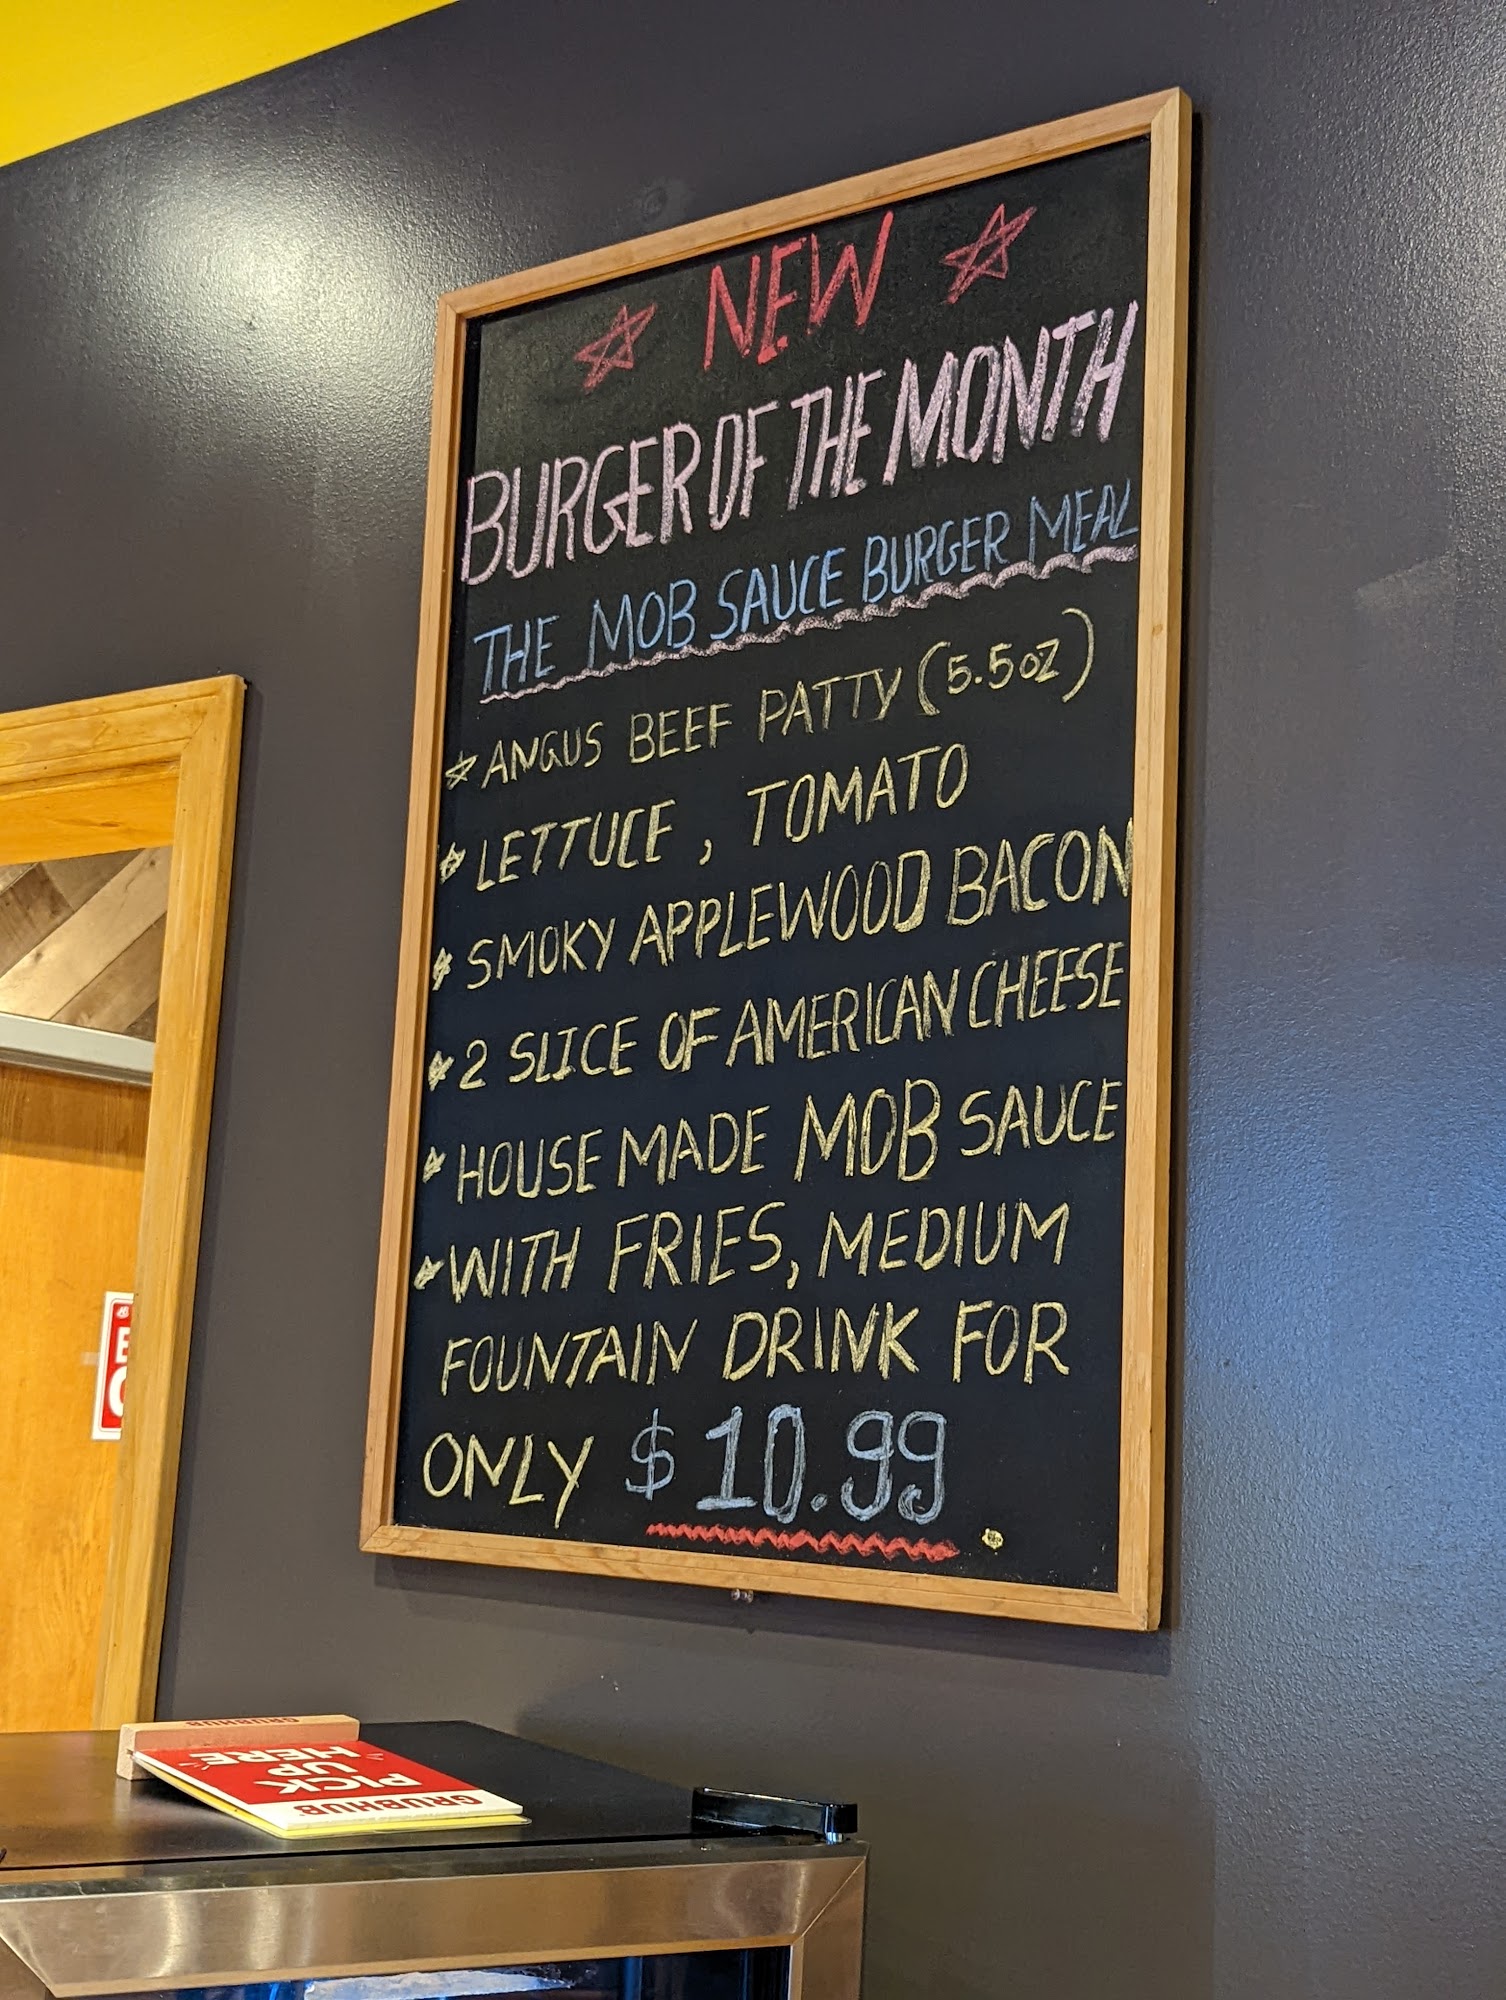 NEW
BURGER OF THE MONTH
THE MOB SAUCE BURGER MEAL
ANGUS BEEF PATTY (5.5oz)
LETTUCE, TOMATO
SMOKY APPLEWOOD BACON
2 SLICE OF AMERICAN CHEESE
HOUSE MADE MOB SAUCE
WITH FRIES, MEDIUM
FOUNTAIN DRINK FOR
ONLY $10.99
GRUBHUB
GRUBHUB
PICK
UP
HERE